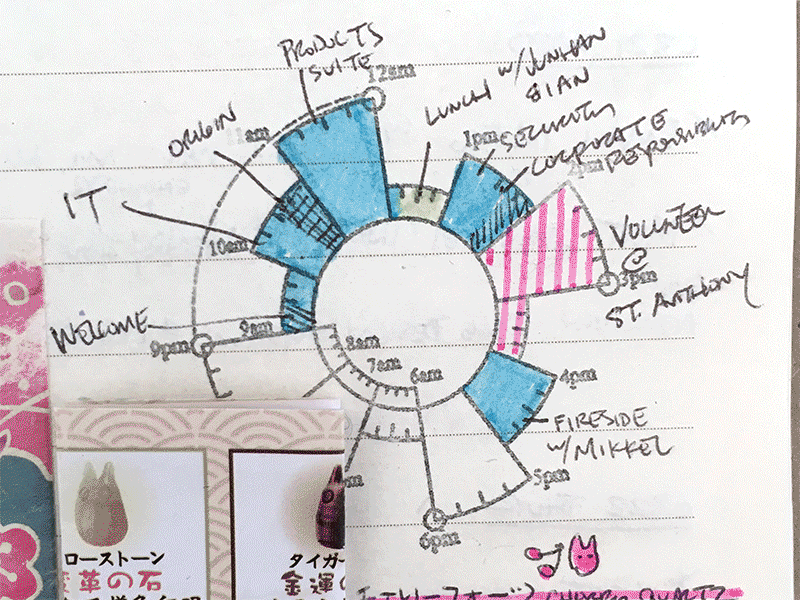 PRODUCTS
SUITE
12am
11am
ORIGIN
LUNCH W/ JUNHAN
SIAN
1pm
SECURITY
CORPORATE
RESPONSIBILITY
2pm
IT
10am
VOLUNTEER
@
3pm
ST. ANTHONY
WELCOME
9am
9pm
8am
7am
6am
4pm
FIRESIDE
W/ MIKKEL
5pm
6pm
ローストーン
変革の石
タイガー
金運の